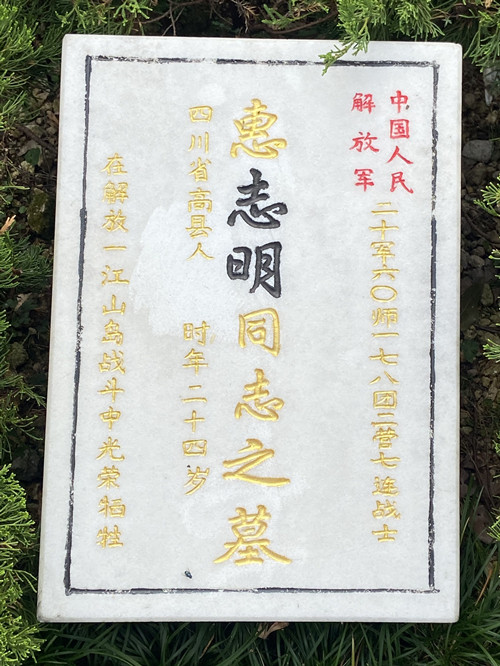 中国人民
解放军
二十军六〇师一七八团二营七连战士
惠志明同志之墓
四川省高县人 时年二十四岁
在解放一江山岛战斗中光荣牺牲